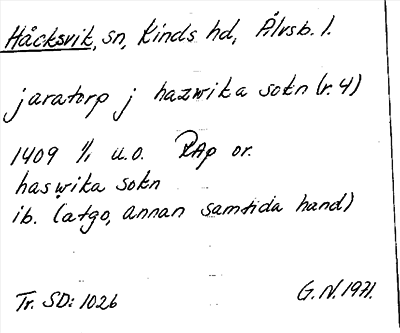 Håcksvik, sn, Kinds hd, Älvsb. l.
jaratorp j hazwika sokn (r. 4)
1409 1/1 u.o. RAp or.
haswika sokn
ib. (atgo, annan samtida hand)
Tr. SD: 1026
G.N. 1971.